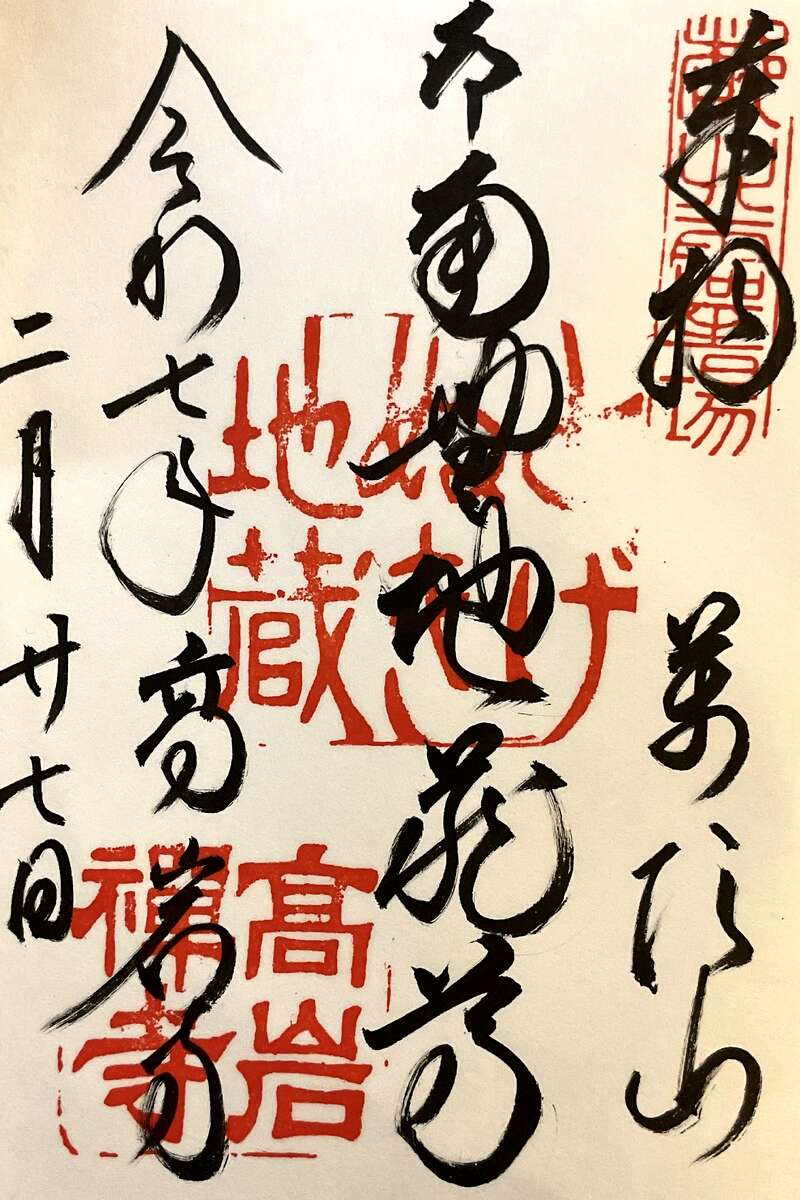 奉拝
萬頂山
南無地蔵尊
令和七年 高岩寺
二月廿七日
とげ
ぬき
地蔵
霊場
髙岩
禪寺